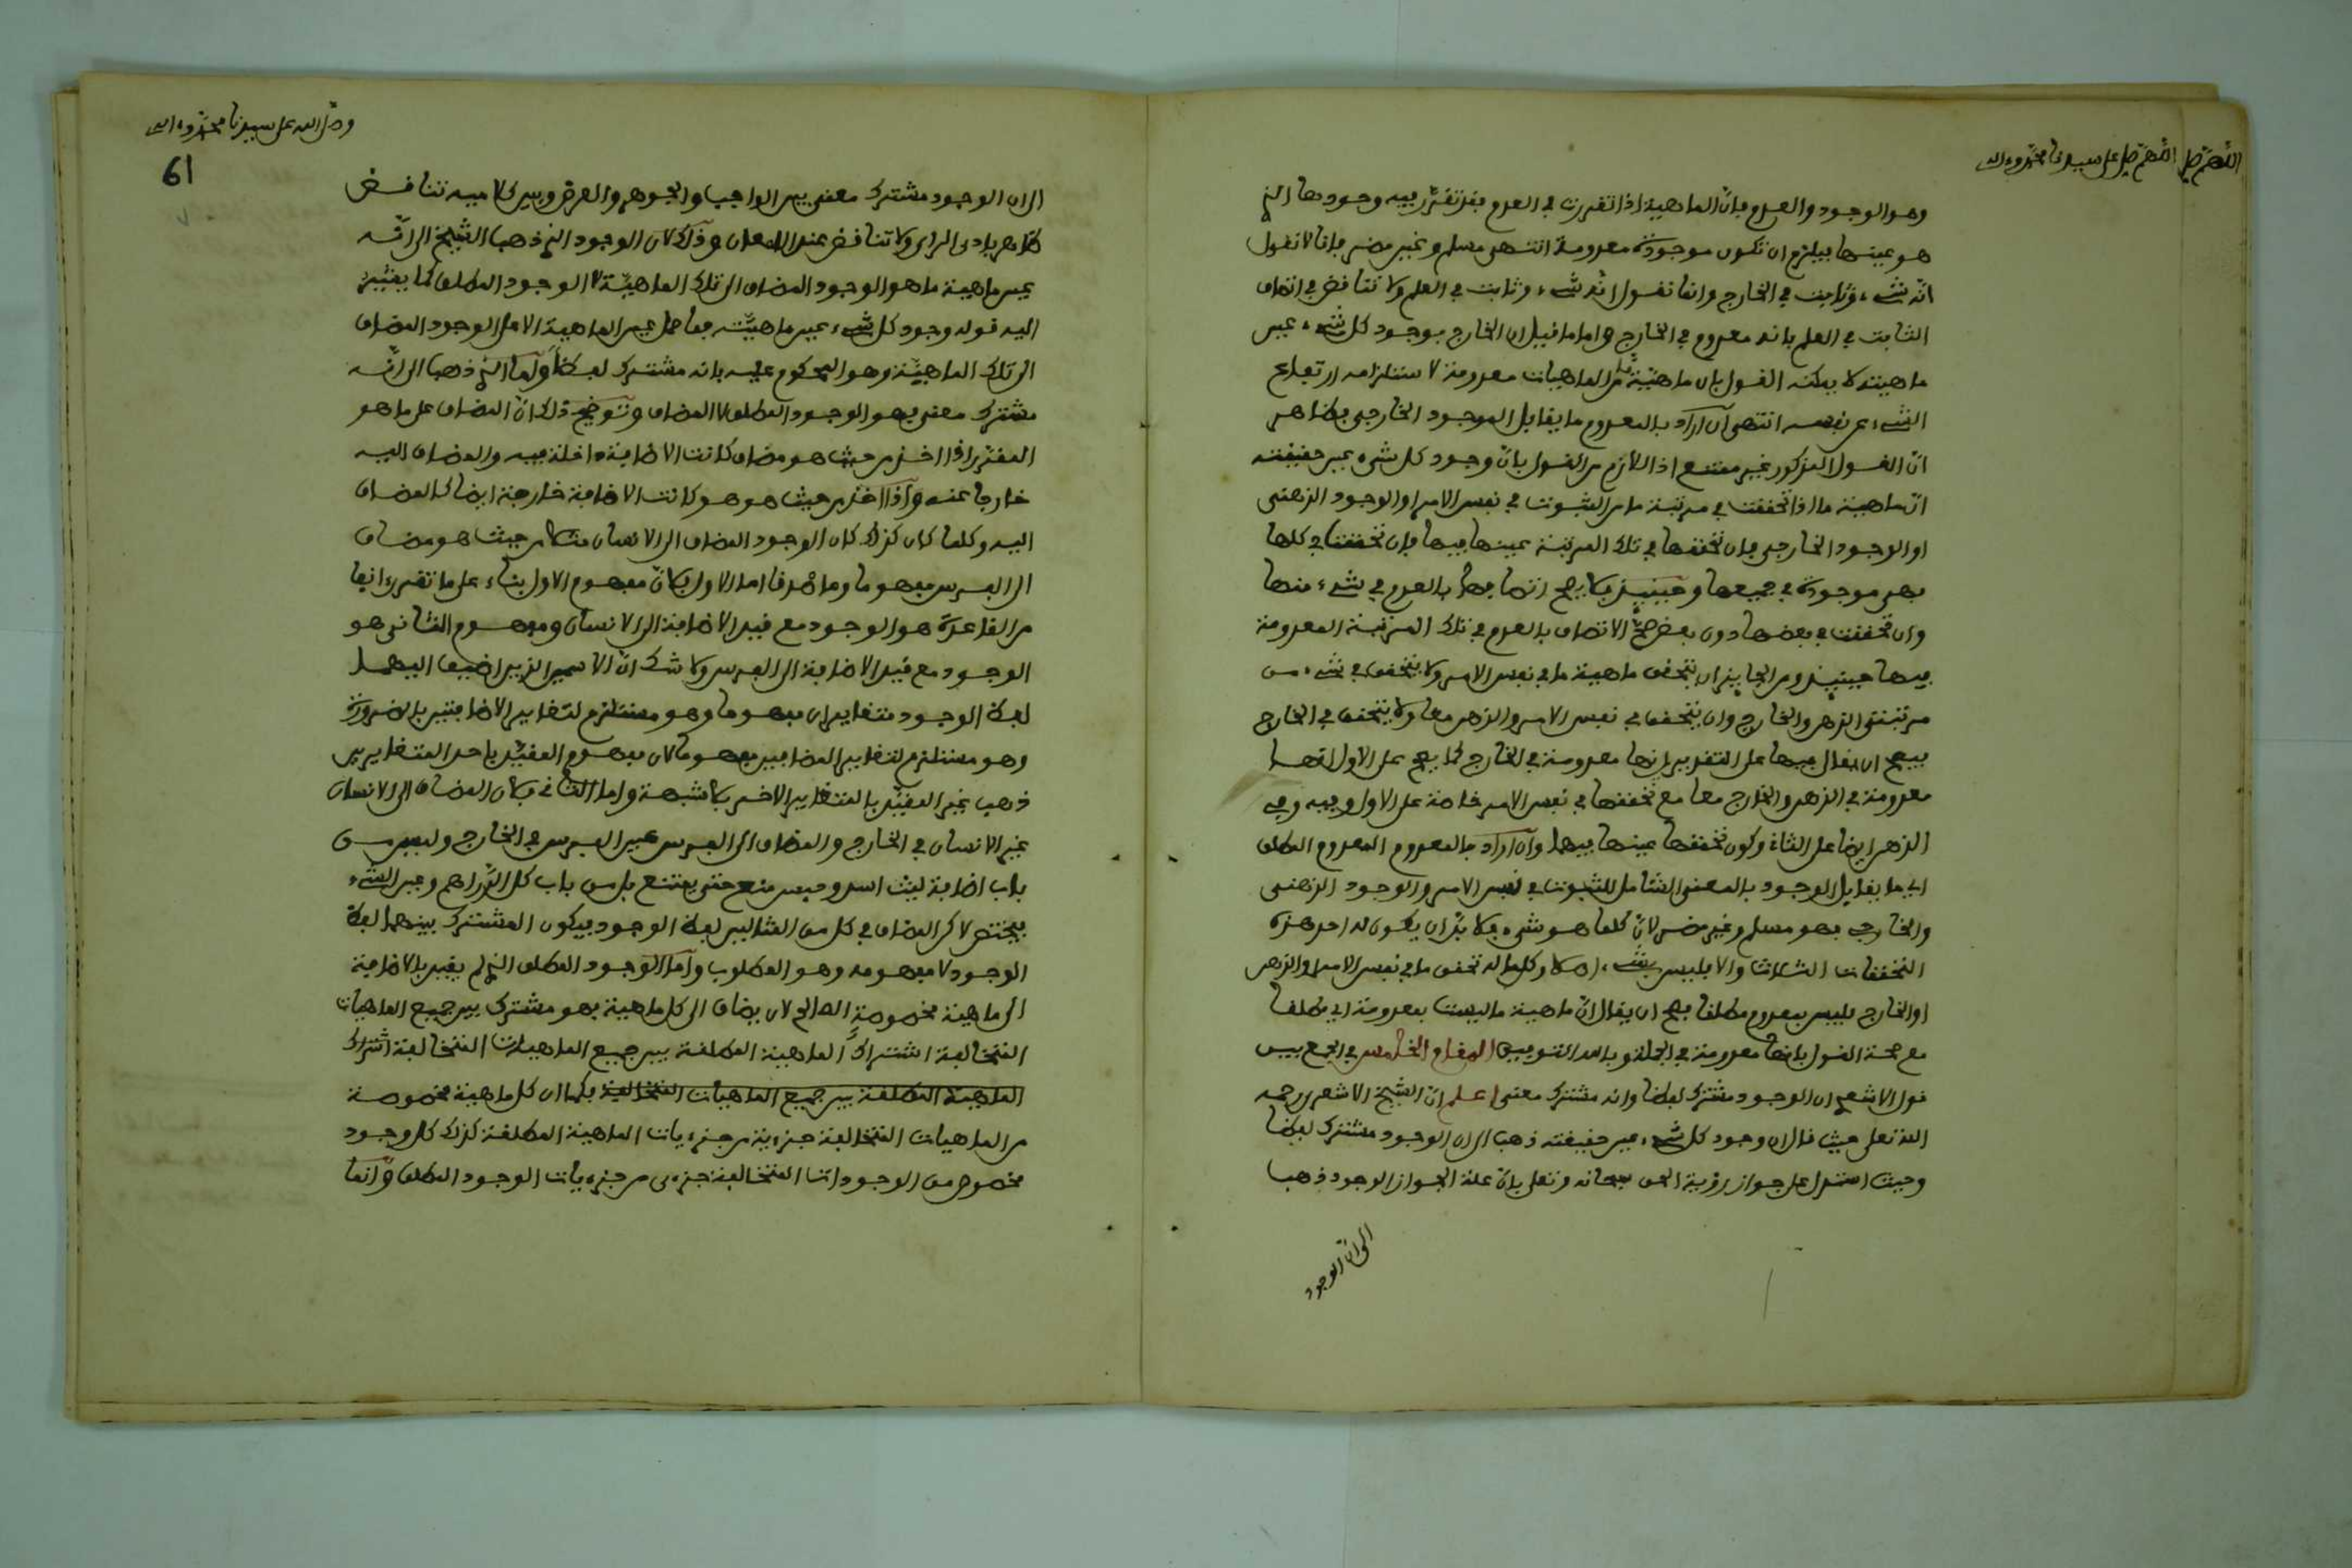 اللهم صل اللهم صل على سيدنا محمد وءاله
وهو الوجود والعدم فان الماهية اذا تقررت في العدم فقد تقرر فيه وجودها الذي
هو عينها فيلزم ان تكون موجودة معدومة انتهى مسلم وغير مضر فانا لا نقول
انه شيء وثابت في الخارج وانما نقول انه شيء وثابت في العلم ولا تناقض في اتصاف
الثابت في العلم بانه معدوم في الخارج واما ما قيل ان الخارج بوجود كل شيء عين
ماهيته لا يمكنه القول بان ماهية ما من الماهيات معدومة لاستلزامه ارتفاع
الشيء عن نفسه انتهى ان اراد بالمعدوم ما يقابل الموجود الخارجي فظاهر
ان القول المذكور غير ممتنع اذ اللازم من القول بان وجود كل شيء عين حقيقته
ان ماهية ما اذا تحققت في مرتبة ما من الثبوت في نفس الامر او الوجود الذهني
او الوجود الخارجي فان تحققها في تلك المرتبة عينها فيها فان تحققت في كلها
فهي موجودة في جميعها وحينئذ فلا يصح اتصافها بالعدم في شيء منها
وان تحققت في بعضها دون بعض صح الاتصاف بالعدم في تلك المرتبة المعدومة
فيها حينئذ ومن الجايز ان يتحقق ماهية ما في نفس الامر ولا يتحقق في شيء من
مرتبتي الذهن والخارج وان يتحقق في نفس الامر والذهن معا ولا يتحقق في الخارج
فيصح ان يقال فيها على التقدير انها معدومة في الخارج كما يصح على الاول انها
معدومة في الذهن والخارج معا مع تحققها في نفس الامر خاصة على الاول وفيه وفي
الذهن ايضا على الثاني وكون تحققها عينها فيهما وان اراد بالمعدوم المعدوم المطلق
اي ما يقابل الوجود بالمعنى الشامل للثبوت في نفس الامر والوجود الذهني
والخارجي فهو مسلم وغير مضر لان كلما هو شيء فلا بد ان يكون له احد هذه
التحققات الثلاث والا فليس بشيء اصلا وكلما له تحقق ما في نفس الامر او الذهن
او الخارج فليس بمعدوم مطلقا فصح ان يقال ان ماهية ما ليست بمعدومة اي مطلقا
مع صحة القول بانها معدومة في الجملة وبالله التوفيق المقام الخامس في الجمع بين
قول الاشعري ان الوجود مشترك لفظا وانه مشترك معنى اعلم ان الشيخ الاشعري رحمه
الله تعلى حيث قال ان وجود كل شيء عين حقيقته ذهب الى ان الوجود مشترك لفظا
وحيث استدل على جواز رؤية الحق سبحانه وتعلى بان علة الجواز الوجود ذهب
الى ان الوجود
وصلى الله على سيدنا محمد وءاله
61
الى ان الوجود مشترك معنى بين الواجب والجوهر والعرض وبين كلاميه تناقض
ظاهر بادى الراي ولا تناقض عند الامعان وذلك لان الوجود الذي ذهب الشيخ الى انه
عين ماهية ما هو الوجود المضاف الى تلك الماهية لا الوجود المطلق كما يشير
اليه قوله وجود كل شيء عين ماهيته فما جعل عين الماهية الا الوجود المضاف
الى تلك الماهية وهو المحكوم عليه بانه مشترك لفظا واما الذي ذهب الى انه
مشترك معنى فهو الوجود المطلق لا المضاف وتوضيح ذلك ان المضاف على ما هو
المقرر اذا اخذ من حيث هو مضاف كانت الاضافة داخلة فيه والمضاف اليه
خارجا عنه واذا اخذ من حيث هو هو كانت الاضافة خارجة ايضا كالمضاف
اليه وكلما كان كذلك كان الوجود المضاف الى الانسان مثلا من حيث هو مضاف
الى الفرس مفهوما وما صدقا اما الاول فلان مفهوم الاول بناء على ما تقرر انفا
من القاعدة هو الوجود مع قيد الاضافة الى الانسان ومفهوم الثاني هو
الوجود مع قيد الاضافة الى الفرس ولا شك ان الاسمين الذين اضيف اليهما
لفظ الوجود متغايران مفهوما وهو مستلزم لتغاير الاضافتين بالضرورة
وهو مستلزم لتغاير المضافين مفهوما لان مفهوم المقيد باحد المتغايرين
ذهب غير المقيد بالمتغاير الاخر بلا شبهة واما الثاني فلان المضاف الى الانسان
غير الانسان في الخارج والمضاف الى الفرس عين الفرس في الخارج وليس من
باب اضافة ليث اسد وحبس منع حتى يمتنع بل من باب كل الدراهم وعين الشيء
فيختص لاكن المضاف في كل من المثالين لفظ الوجود فيكون المشترك بينهما لفظ
الوجود لا مفهومه وهو المطلوب واما الوجود المطلق الذي لم يقيد بالاضافة
الى ماهية مخصوصة الصالح لان يضاف الى كل ماهية فهو مشترك بين جميع الماهيات
المتخالفة اشتراك الماهية المطلقة بين جميع الماهيات المتخالفة اشتراك
الماهية المطلقة بين جميع الماهيات المتخالفة فكما ان كل ماهية مخصوصة
من الماهيات المتخالفة جزءية من جزءيات الماهية المطلقة كذلك كل وجود
مخصوص من الوجودات المتخالفة جزءي من جزءيات الوجود المطلق وانما